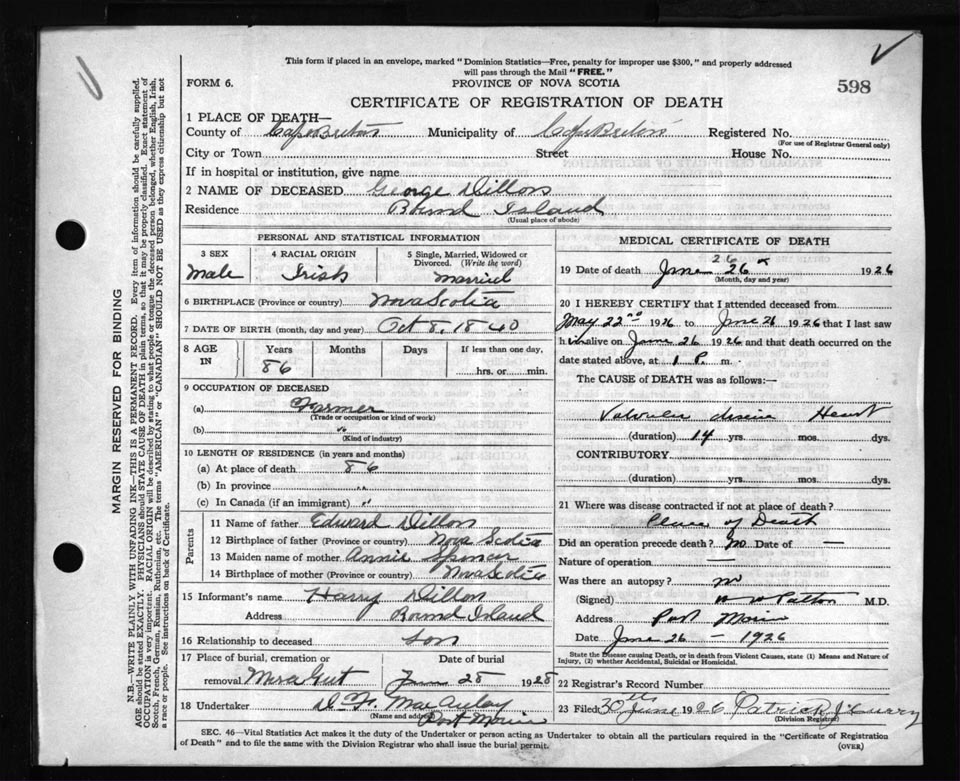 This form if placed in an envelope, marked "Dominion Statistics—Free, penalty for improper use $300," and properly addressed
will pass through the Mail "FREE."
FORM 6.
PROVINCE OF NOVA SCOTIA
598
CERTIFICATE OF REGISTRATION OF DEATH
1 PLACE OF DEATH—
County of Cape Breton Municipality of Cape Breton Registered No.
(For use of Registrar General only)
City or Town Street House No.
If in hospital or institution, give name
2 NAME OF DECEASED George Dillon
Residence Round Island
(Usual place of abode)
PERSONAL AND STATISTICAL INFORMATION
3 SEX 4 RACIAL ORIGIN 5 Single, Married, Widowed or
Divorced. (Write the word)
Male Irish Married
6 BIRTHPLACE (Province or country) Nova Scotia
7 DATE OF BIRTH (month, day and year) Oct 8, 1840
8 AGE IN Years Months Days If less than one day,
86 hrs. or min.
9 OCCUPATION OF DECEASED
(a) Farmer
(Trade or occupation or kind of work)
(b) "
(Kind of industry)
10 LENGTH OF RESIDENCE (in years and months)
(a) At place of death 86
(b) In province "
(c) In Canada (if an immigrant) "
Parents
11 Name of father Edward Dillon
12 Birthplace of father (Province or country) Nova Scotia
13 Maiden name of mother Annie Spencer
14 Birthplace of mother (Province or country) Nova Scotia
15 Informant's name Harry Dillon
Address Round Island
16 Relationship to deceased Son
17 Place of burial, cremation or Date of burial
removal Mira Gut June 28 1928
18 Undertaker D. F. MacAulay
(Name and address) Port Morien
MEDICAL CERTIFICATE OF DEATH
26
19 Date of death June 26 1926
(Month, day and year)
20 I HEREBY CERTIFY that I attended deceased from
May 22nd 1926 to June 26 1926 that I last saw
him alive on June 26 1926 and that death occurred on the
date stated above, at 1 P. m.
The CAUSE of DEATH was as follows:—
Valvular disease Heart
(duration) 14 yrs. mos. dys.
CONTRIBUTORY
(duration) yrs. mos. dys.
21 Where was disease contracted if not at place of death?
Place of Death
Did an operation precede death? no Date of —
Nature of operation —
Was there an autopsy? no
(Signed) Patton M.D.
Address Port Morien
Date June 26 — 1926
State the Disease causing Death, or in death from Violent Causes, state (1) Means and Nature of
Injury, (2) whether Accidental, Suicidal or Homicidal.
22 Registrar's Record Number
23 Filed 30th June 1926 Patrick J. Curry
(Division Registrar)
SEC. 46—Vital Statistics Act makes it the duty of the Undertaker or person acting as Undertaker to obtain all the particulars required in the "Certificate of Registration
of Death" and to file the same with the Division Registrar who shall issue the burial permit.
(OVER)
MARGIN RESERVED FOR BINDING
N.B.—WRITE PLAINLY WITH UNFADING INK—THIS IS A PERMANENT RECORD. Every item of information should be carefully supplied.
AGE should be stated EXACTLY. PHYSICIANS should STATE CAUSE OF DEATH in plain terms, so that it may be properly classified. Exact statement of
OCCUPATION is very important. RACIAL ORIGIN will be described by stating to what people or tongue the deceased person belonged, whether English, Irish,
Scotch, French, German, Russian, Ruthenian, etc. The terms "AMERICAN" or "CANADIAN" SHOULD NOT BE USED as they express citizenship but not
a race or people. See instructions on back of Certificate.